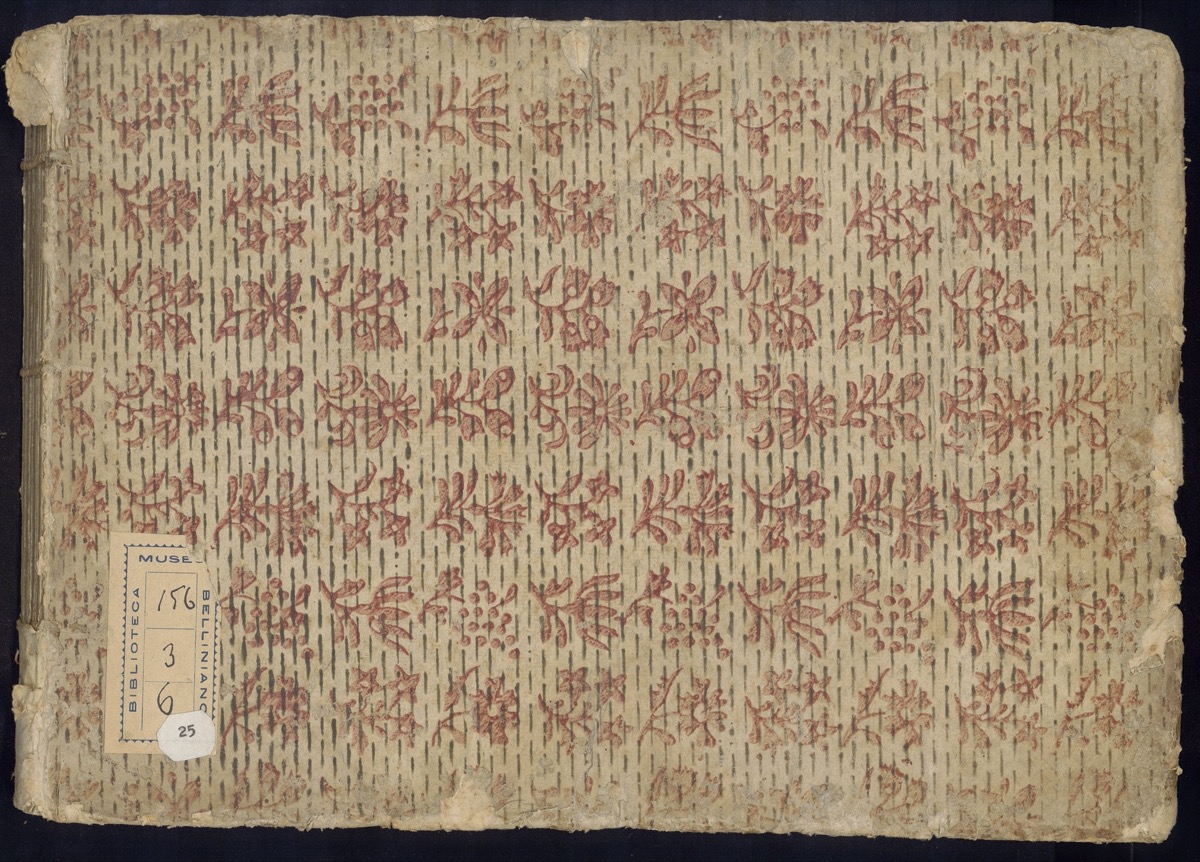 MUSE
BIBLIOTECA
BELLINIANO
156
3
6
25